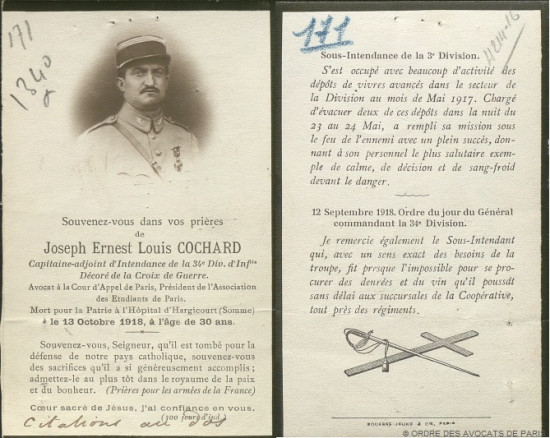 171
1340
Souvenez-vous dans vos prières
de
Joseph Ernest Louis COCHARD
Capitaine-adjoint d'Intendance de la 34e Div. d'Infie
Décoré de la Croix de Guerre.
Avocat à la Cour d'Appel de Paris, Président de l'Association
des Etudiants de Paris.
Mort pour la Patrie à l'Hôpital d'Hargicourt (Somme)
le 13 Octobre 1918, à l'âge de 30 ans.
Souvenez-vous, Seigneur, qu'il est tombé pour la
défense de notre pays catholique, souvenez-vous
des sacrifices qu'il a si généreusement accomplis ;
admettez-le au plus tôt dans le royaume de la paix
et du bonheur. (Prières pour les armées de la France)
Cœur sacré de Jésus, j'ai confiance en vous.
(300 jours d'ind.)
Citations au dos
171
Sous-Intendance de la 3e Division.
S'est occupé avec beaucoup d'activité des
dépôts de vivres avancés dans le secteur de
la Division au mois de Mai 1917. Chargé
d'évacuer deux de ces dépôts dans la nuit du
23 au 24 Mai, a rempli sa mission sous
le feu de l'ennemi avec un plein succès, don-
nant à son personnel le plus salutaire exem-
ple de calme, de décision et de sang-froid
devant le danger.
12 Septembre 1918. Ordre du jour du Général
commandant la 34e Division.
Je remercie également le Sous-Intendant
qui, avec un sens exact des besoins de la
troupe, fit presque l'impossible pour se pro-
curer des denrées et du vin qu'il poussât
sans délai aux succursales de la Coopérative,
tout près des régiments.
BOUASSE-JEUNE & CIE, PARIS
© ORDRE DES AVOCATS DE PARIS